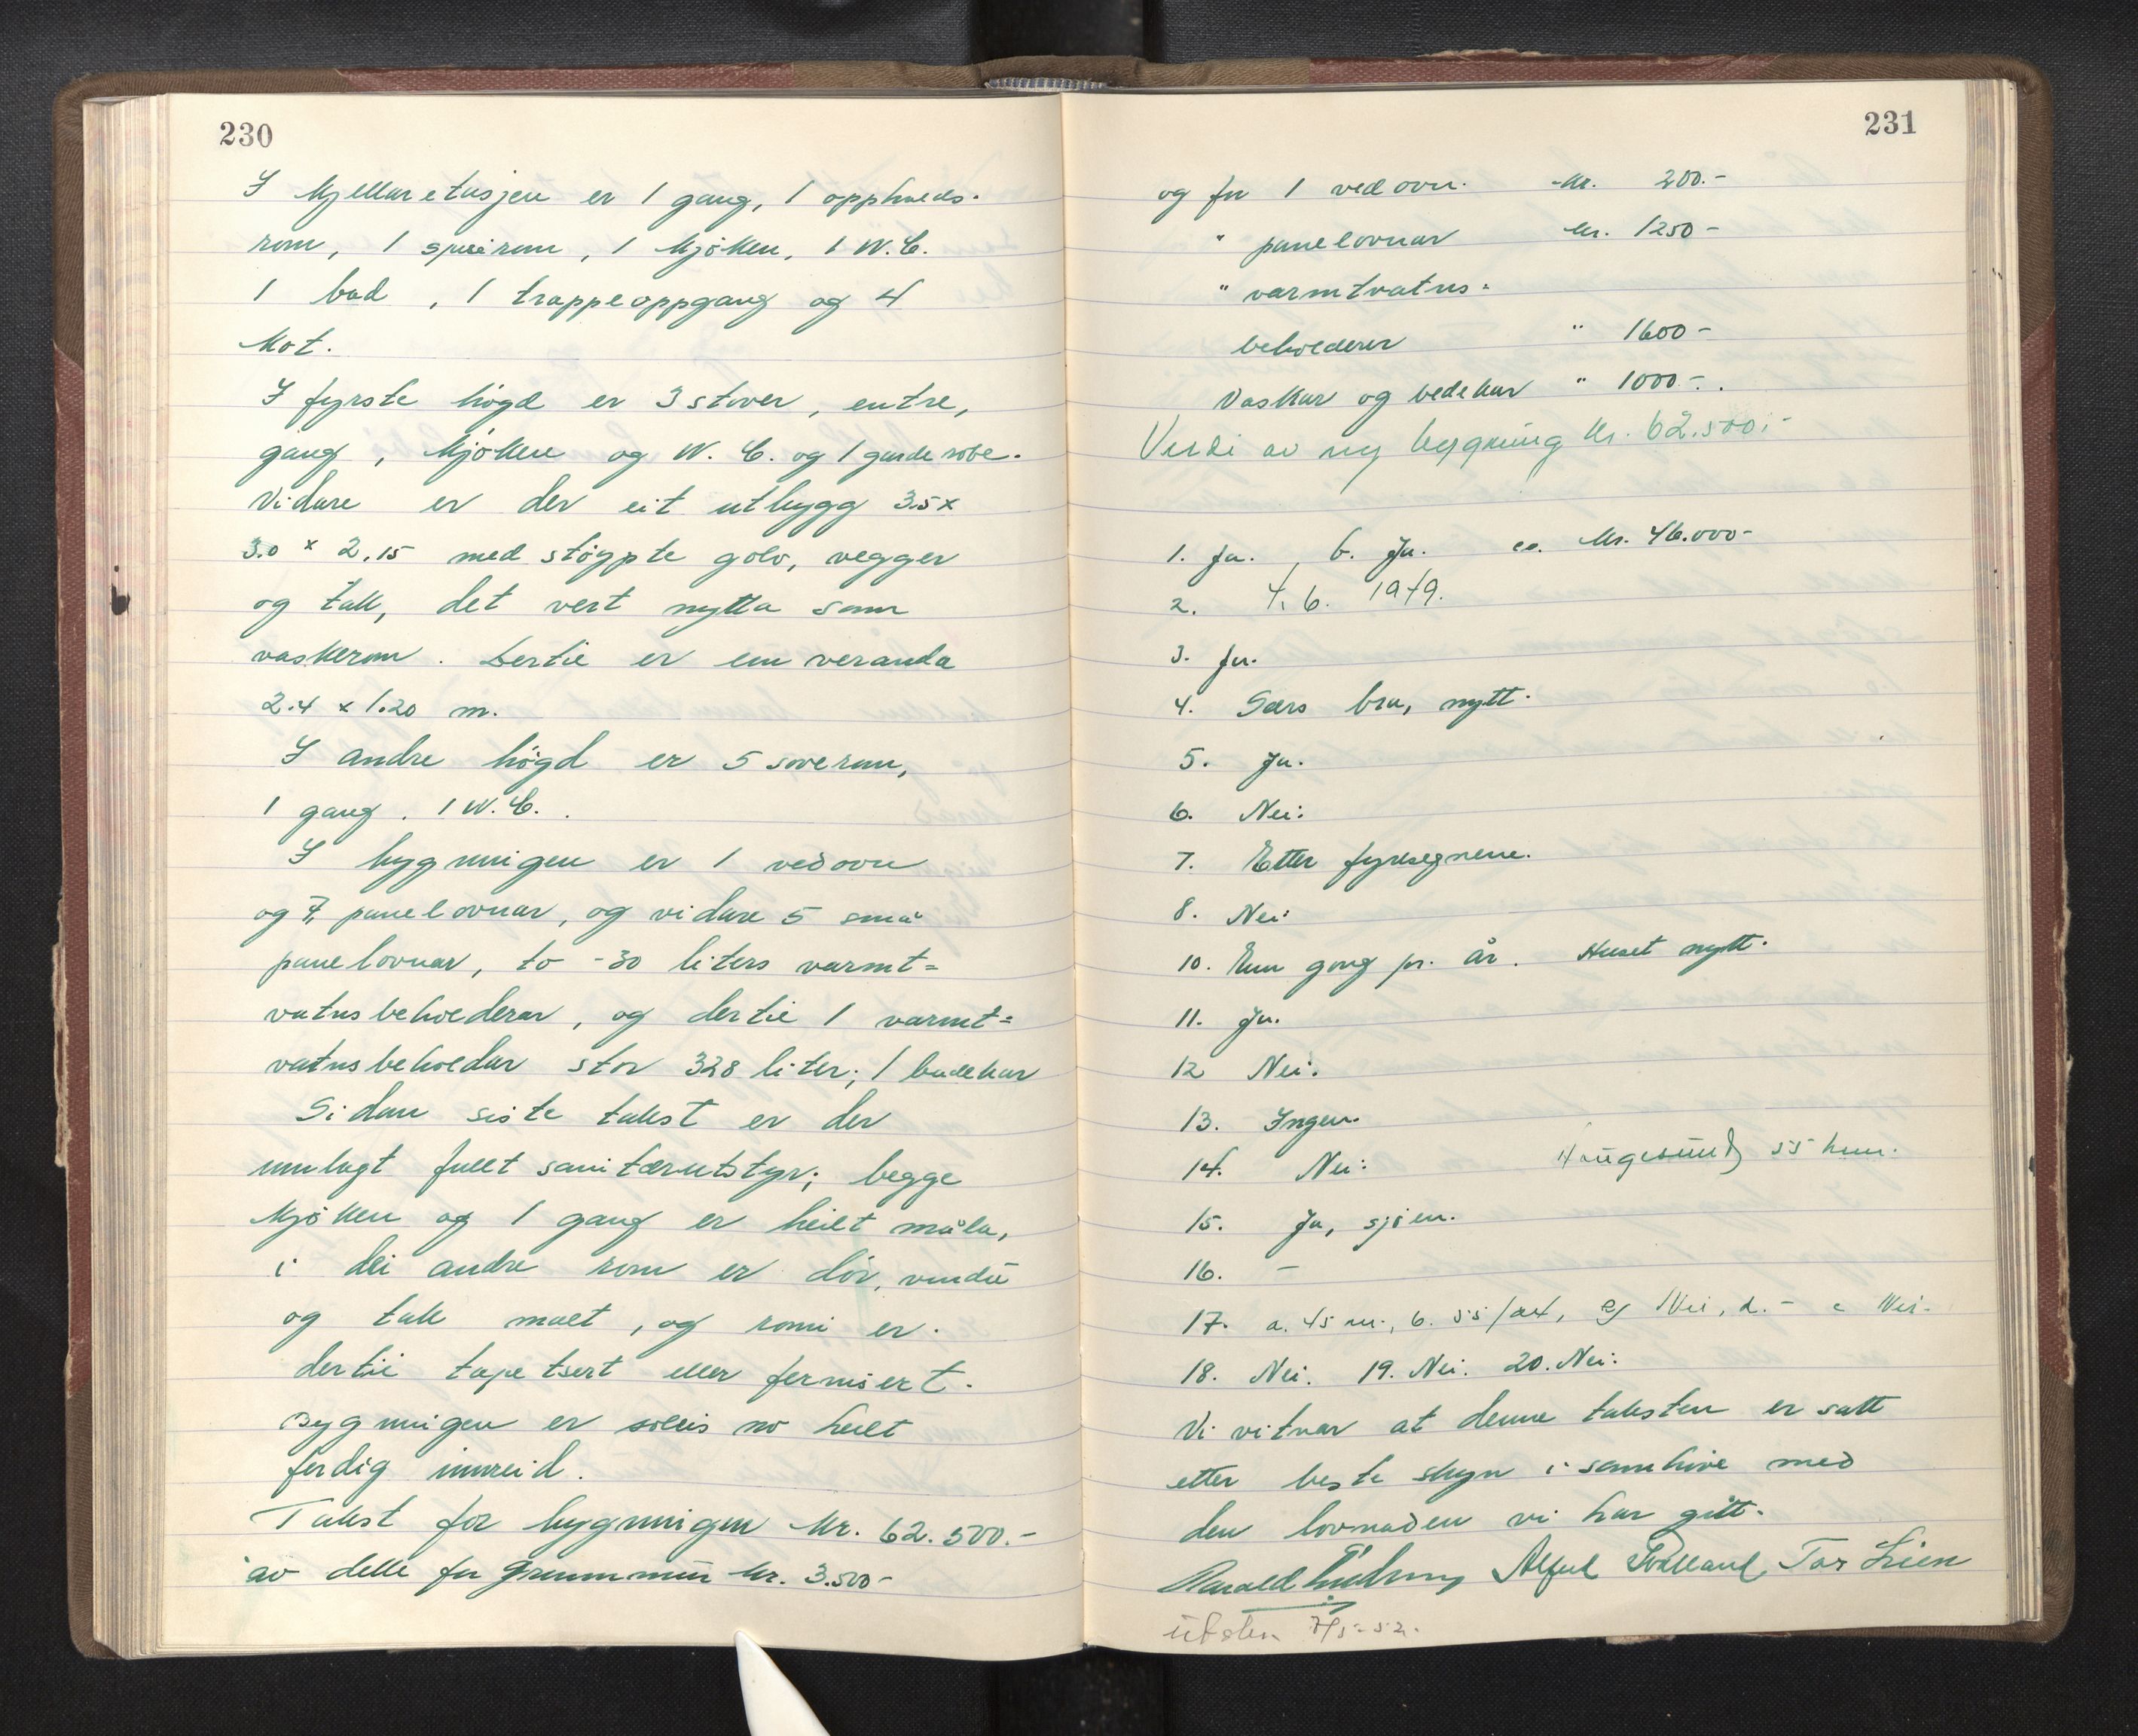 230
I kjellaretasjen er 1 gang, 1 opphalds-
rom, 1 speirom, 1 kjøken, 1 W.C.
1 bad, 1 trappeoppgang og 4
kot.
I fyrste høgd er 3 stover, entre,
gang, kjøken og W.C. og 1 garderobe.
Vidare er der eit utbygg 3.5 x
3.0 x 2.15 med støypte golv, vegger
og tak, det vert nytta som
vaskerom. Dertil er ein veranda
2.4 x 1.20 m.
I andre høgd er 5 soverom,
1 gang, 1 W.C.
I bygningen er 1 vedovn
og 7 panelovnar, og vidare 5 små
panelovnar, to -30 liters varmt=
vatnsbehoedarar, og dertil 1 varmt=
vatnsbehoedar stor 328 liter; 1 badekar
Sidan siste takst er der
innlagt fullt sanitærutstyr; begge
kjøken og 1 gang er heilt måla,
i dei andre rom er dør, vindu
og tak malt, og romi er
dertil tapetsert eller fernisert.
Bygningen er soleis no heilt
ferdig innreid.
Takst for bygningen kr. 62.500.-
av dette for grunnmur kr. 3.500-
231
og for 1 vedovn. kr. 200.-
" panelovnar kr. 1250-
" varmtvatns=
behoederer " 1600-
Vaskar og badekar " 1000-.
Verdi av ny bygning kr. 62.500.-
1. Ja. 6. Ja. ca. kr. 46.000-
2. 4.6. 1949.
3. Ja.
4. Særs bra, nytt.
5. Ja.
6. Nei.
7. Etter fyresegnene.
8. Nei.
10. Ein gong pr. år. Huset nytt.
11. Ja.
12 Nei.
13. Ingen.
14. Nei. Haugesund 55 km.
15. Ja, sjøen.
16. -
17. a. 45 m., b. 55 c Nei, d. - e Nei.
18. Nei. 19. Nei. 20. Nei.
Vi vitnar at denne taksten er satt
etter beste skyn i samhøve med
den lovnaden vi har gitt.
Harald Tor Lien
7/5-52.